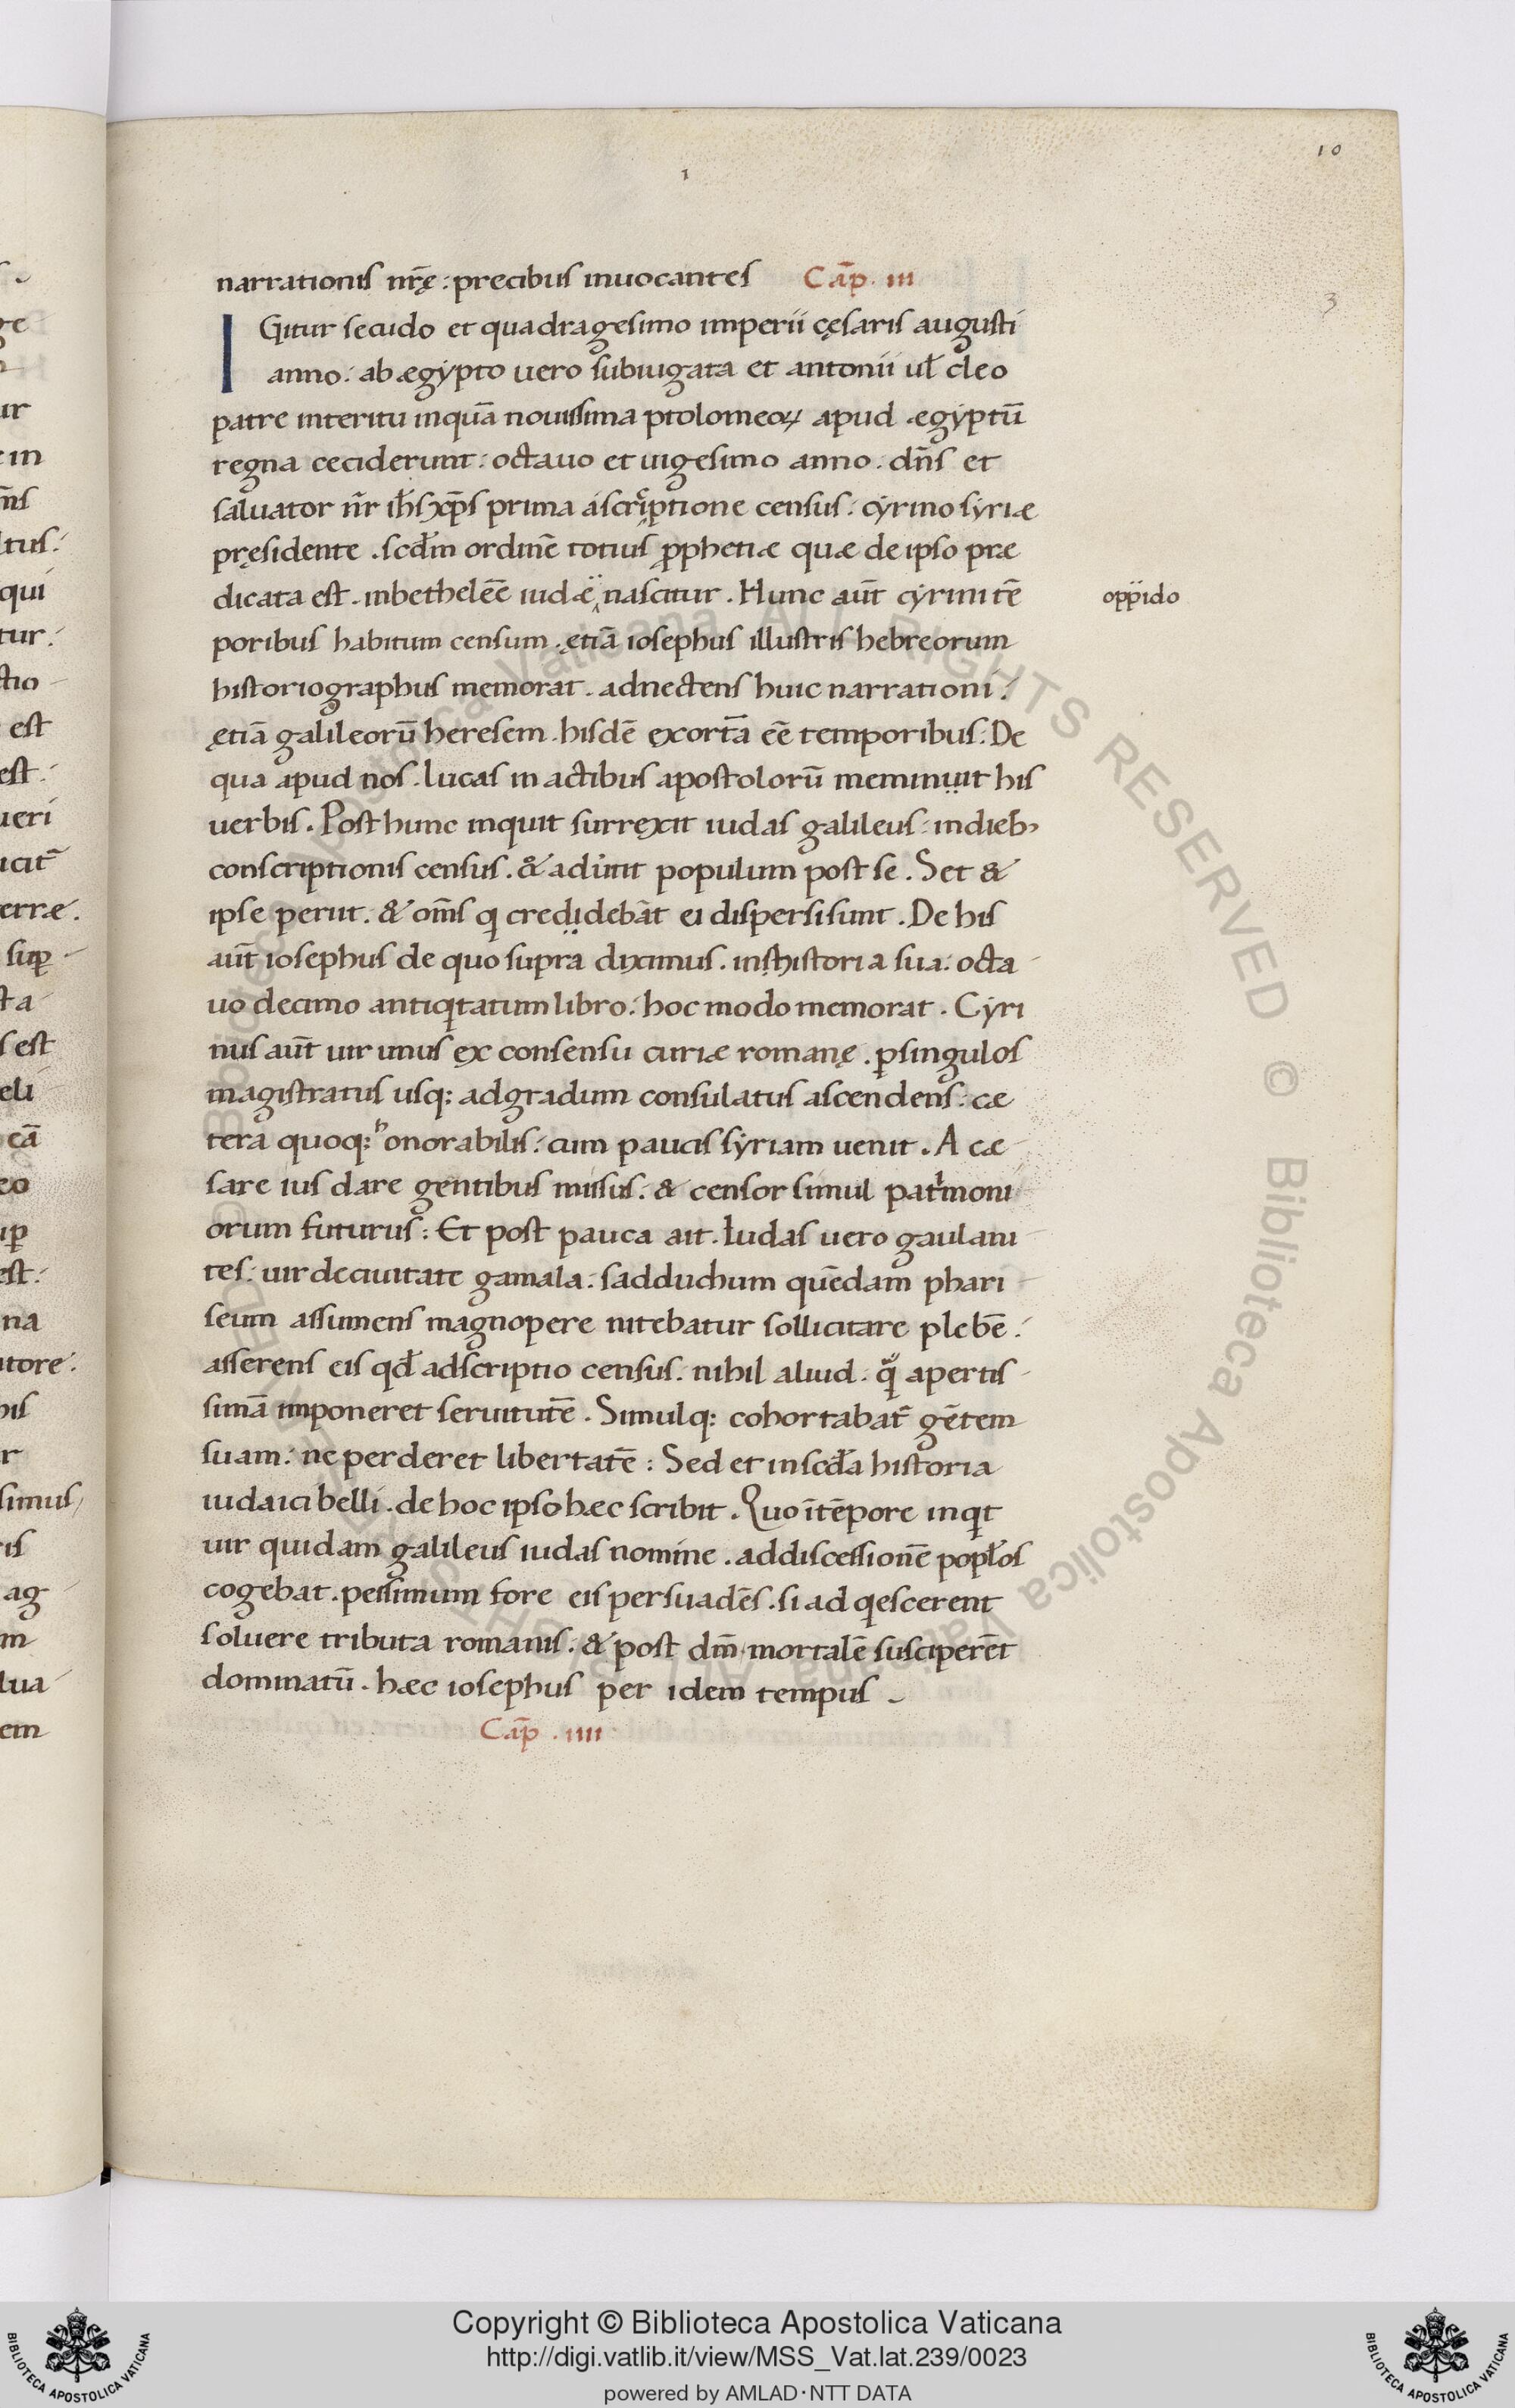 10
1
narrationis nr̄ę : precibus inuocantes Cāp . III
3
IGitur secūdo et quadragesimo imperii cęsaris augusti
anno : ab ægypto uero subiugata et antonii ul̄ cleo
patre interitu inquā nouissima ptolomeoꝝ apud ægyptū
regna ceciderunt : octauo et uigesimo anno . dn̄s et
saluator nr̄ ih̄s xp̄s prima ascriptione census : cyrino syriæ
pręsidente . scd̄m ordinē totius ꝓphetiæ quæ de ipso præ
dicata est . in bethleēē iudæ nascitur . Hunc aūt cyrini tē
oppido
poribus habitum censum . ętiā iosephus illustris hebreorum
historiographus memorat . adnectens huic narrationi :
ętiā galileorū heresem . hisdē exortā eē temporibus : De
qua apud nos . lucas in actibus apostolorū meminuit his
uerbis . Post hunc inquit surrexit iudas galileus : in dieb;
conscriptionis census . & adūnt populum post se . Set &
ipse periit . & om̄s q credidebāt ei dispersi sunt . De his
aūt iosephus de quo supra diximus . in shistoria sua : octa
uo decimo antiqitatum libro : hoc modo memorat . Cyri
nus aūt uir unus ex consensu curiæ romanę . ꝑ singulos
magistratus usq; ad gradum consulatus ascendens : cæ
tera quoq; honorabilis : cum paucis syriam uenit . A cæ
sare ius dare gentibus missus : & censor simul patrimoni
orum futurus : Et post pauca ait . Iudas uero gaulani
tes : uir de ciuitate gamala : sadduchum quēdam phari
seum assumens magnopere nitebatur sollicitare plebē :
asserens eis qd̄ adscriptio census . nihil aliud . q̄ apertis
simā imponeret seruitutē . Simulq; cohortabat̄ gētem
suam : ne perderet libertatē : Sed et in scd̄a historia
iudaici belli . de hoc ipso hæc scribit . Quo ī tēpore inqit
uir quidam galileus iudas nomine . ad discessionē popl̄os
cogebat . pessimum fore eis persuadēs . si adqescerent
soluere tributa romanis : & post dm̄ mortalē susciperēt
dominatū . hæc iosephus per idem tempus
Cāp . IIII
Copyright © Biblioteca Apostolica Vaticana
http://digi.vatlib.it/view/MSS_Vat.lat.239/0023
powered by AMLAD·NTT DATA